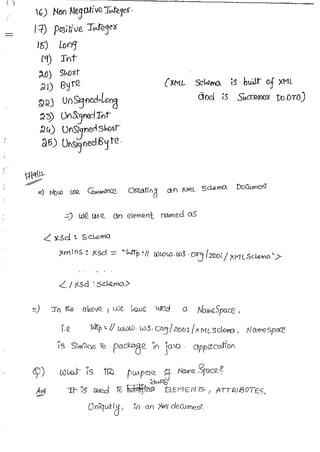 16) Non Negative Integer.
17) Positive Integer
18) Long
19) Int
20) Short
21) Byte
(XML Schema is built of XML
and is Successor to DTD)
22) UnSigned-Long
23) UnSigned Int
24) UnSigned short
25) UnsignedByte.
=) Now we Commence Creating an XML Schema Document
=) we use an element named as
< xsd : Schema
xmlns : xsd = "http://www.w3.org/2001/XMLSchema">
. . . . .
</xsd :schema>
=) In the above, we have used a NameSpace,
i.e http://www.w3.org/2001/XMLSchema, Namespace
is Similar to package in java application
Q) what is the purpose of Name Space?
Ans It is used to identify ELEMENTS, ATTRIBUTES,
Uniquely, in an Xml document.